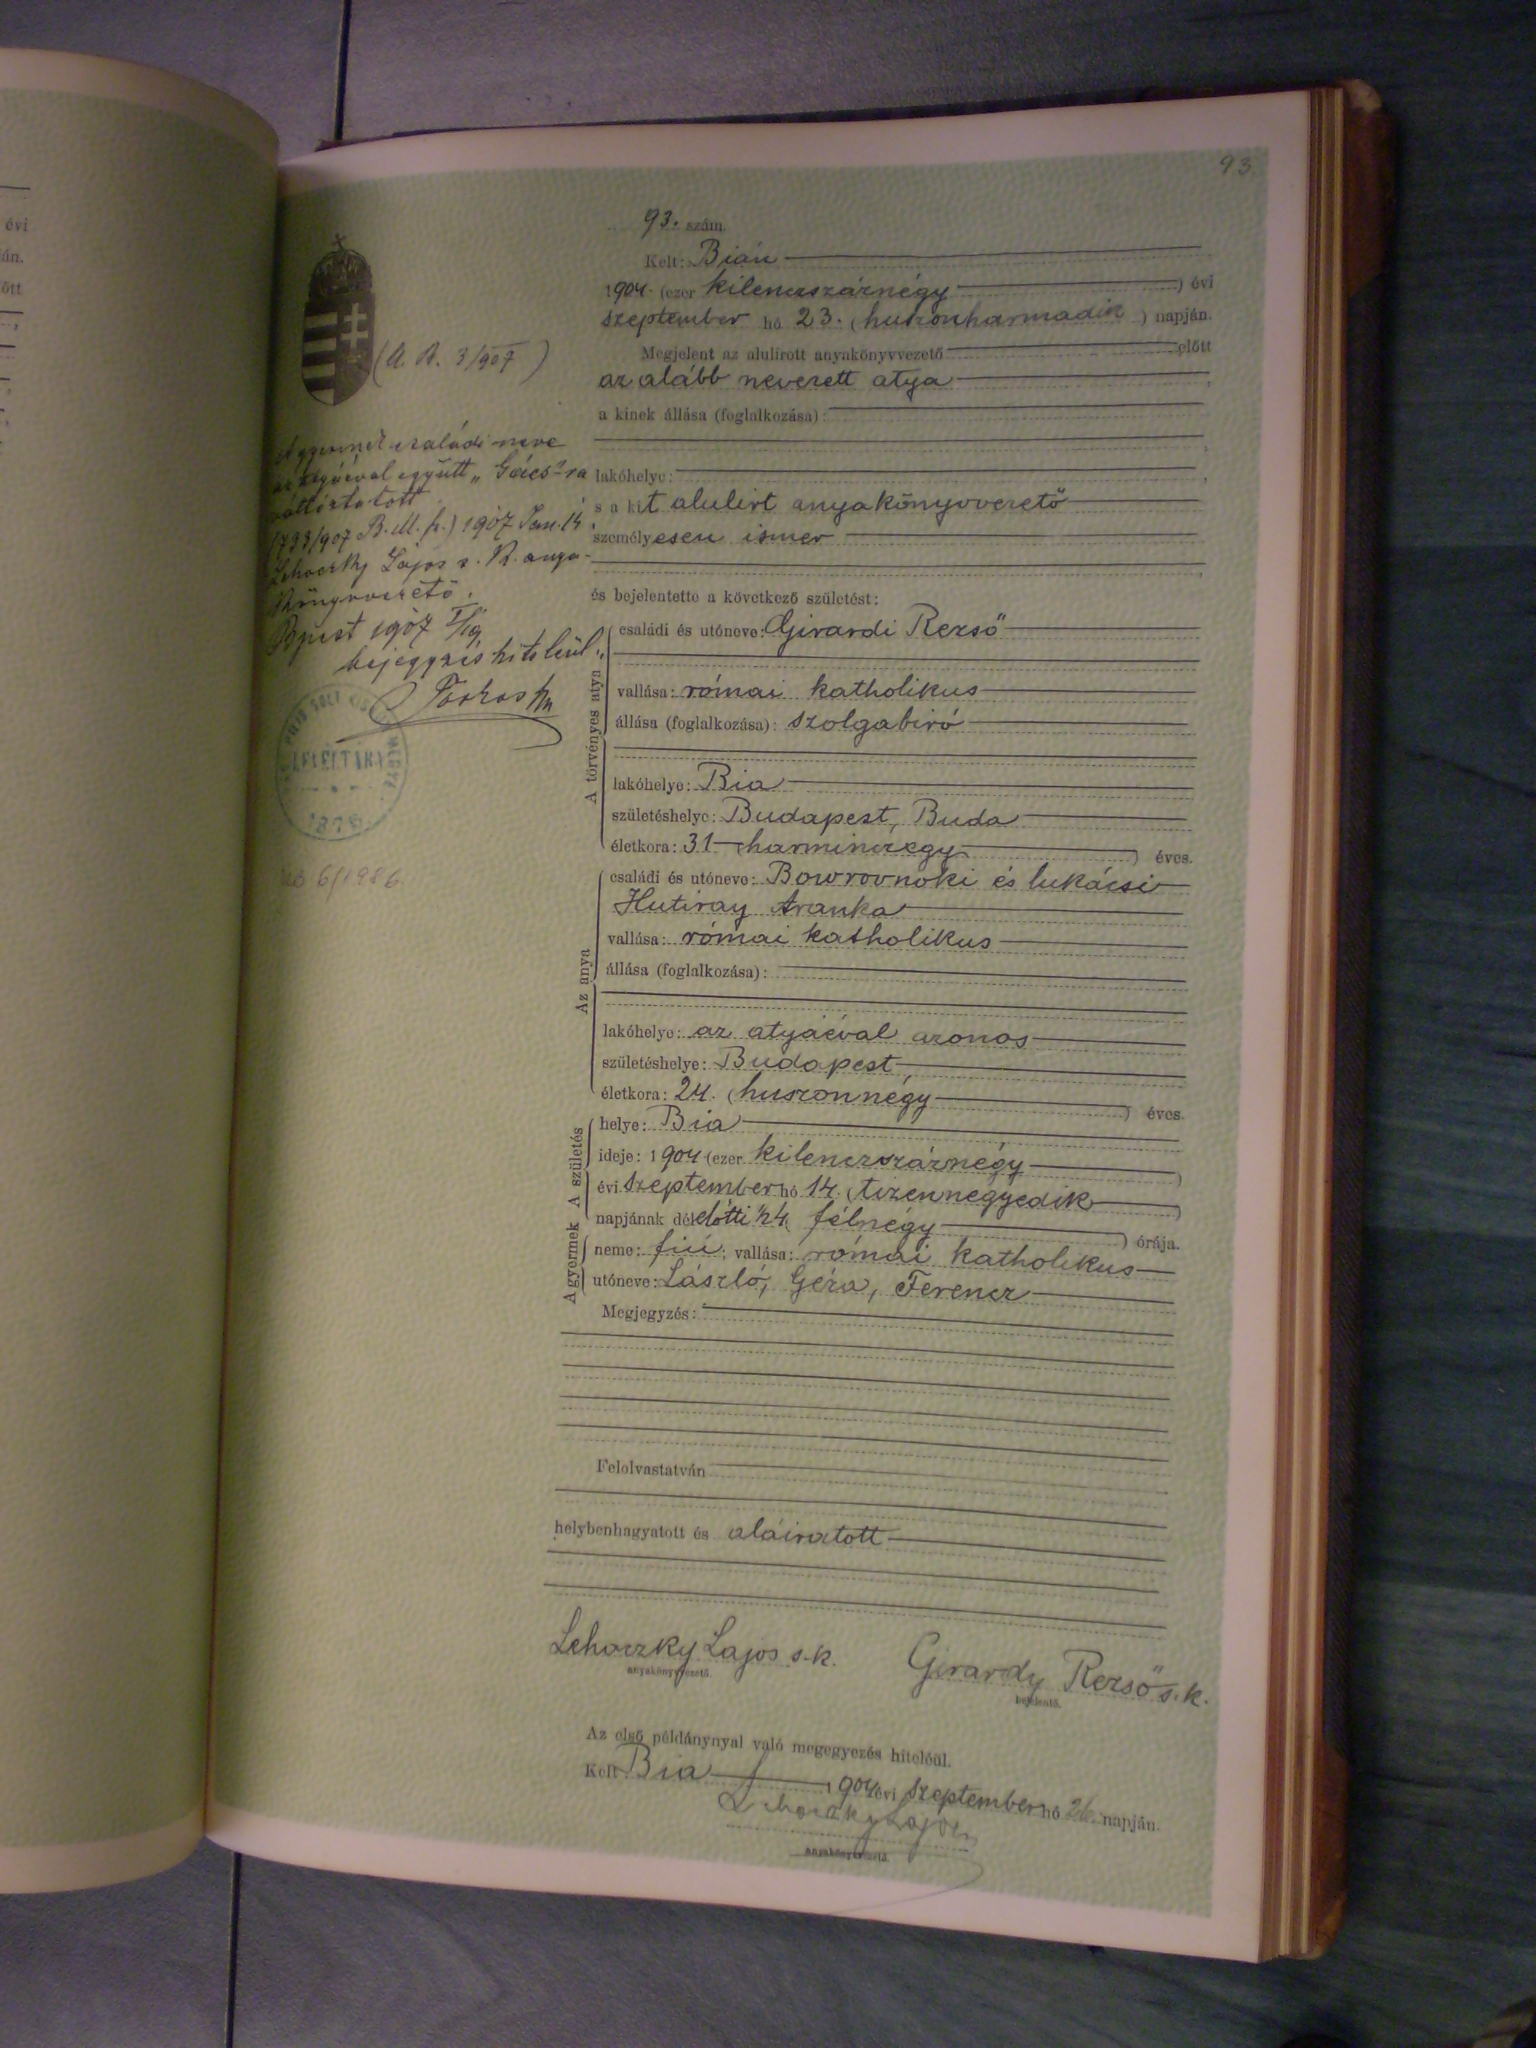 évi
án.
ött
93
93. szám.
Kelt: Bián
1904. (ezer kilenczszáznégy ) évi
szeptember hó 23. (huszonharmadik ) napján.
Megjelent az alulirott anyakönyvvezető előtt
az alább nevezett atya
a kinek állása (foglalkozása):
lakóhelye:
s a kit alulirt anyakönyvvezető
személyesen ismer
és bejelentette a következő születést:
A törvényes atya
családi és utóneve: Girardi Rezső
vallása: római katholikus
állása (foglalkozása): szolgabiró
lakóhelye: Bia
születéshelye: Budapest, Buda
életkora: 31 (harminczegy ) éves.
Az anya
családi és utóneve: Bowrovnoki és lukácsi
Hutiray Aranka
vallása: római katholikus
állása (foglalkozása):
lakóhelye: az atyáéval azonos
születéshelye: Budapest
életkora: 24. (huszonnégy ) éves.
A születés
helye: Bia
ideje: 1904 (ezer kilenczszáznégy )
évi szeptember hó 14. (tizennegyedik )
napjának délelőtti ½4 (félnégy ) órája.
A gyermek
neme: fiú; vallása: római katholikus
utóneve: László, Géza, Ferencz
Megjegyzés:
Felolvastatván
helybenhagyatott és aláiratott
Lehoczky Lajos s.k. Girardy Rezső s.k.
anyakönyvvezető. bejelentő.
Az első példánynyal való megegyezés hiteléül.
Kelt Bia 1904 évi szeptember hó 26. napján.
Lehoczky Lajos
anyakönyvvezető.
(A. B. 3/907)
A gyermek családi neve
az atyáéval együtt „Gács"-ra
változtatott
B.M. sz.) 1907 Jan. 14
Lehoczky Lajos s. k. anya-
könyvvezető.
Bpest 1907 I/19
bejegyzés hiteléül:
LEVÉLTÁRA
6/1986.